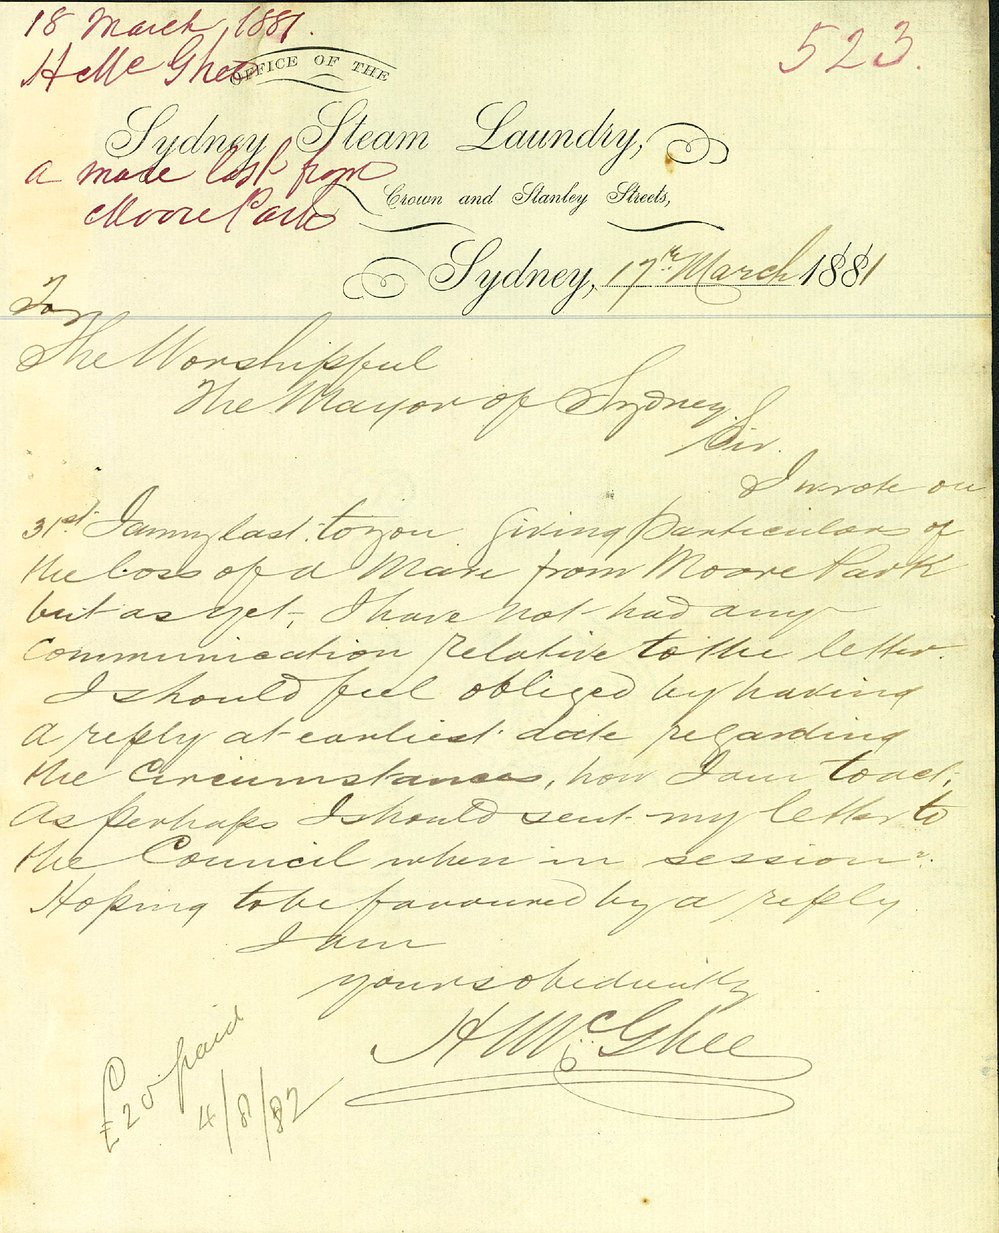 18 March 1881.
H Mc Ghee
523.
OFFICE OF THE
Sydney Steam Laundry,
a mare lost from
Moore Park
Crown and Stanley Streets,
Sydney, 17th March 1881
To
The Worshipful
The Mayor of Sydney
Sir.
I wrote on
31st Jany last to you giving particulars of
the loss of a Mare from Moore Park
but as yet, I have not had any
Communication relative to the letter.
I should feel obliged by having
a reply at earliest date regarding
the Circumstances, how I am to act,
as perhaps I should sent my letter to
the Council when in session.
Hoping to be favoured by a reply
I am
yours obediently
H McGhee
£20 paid
4/8/82